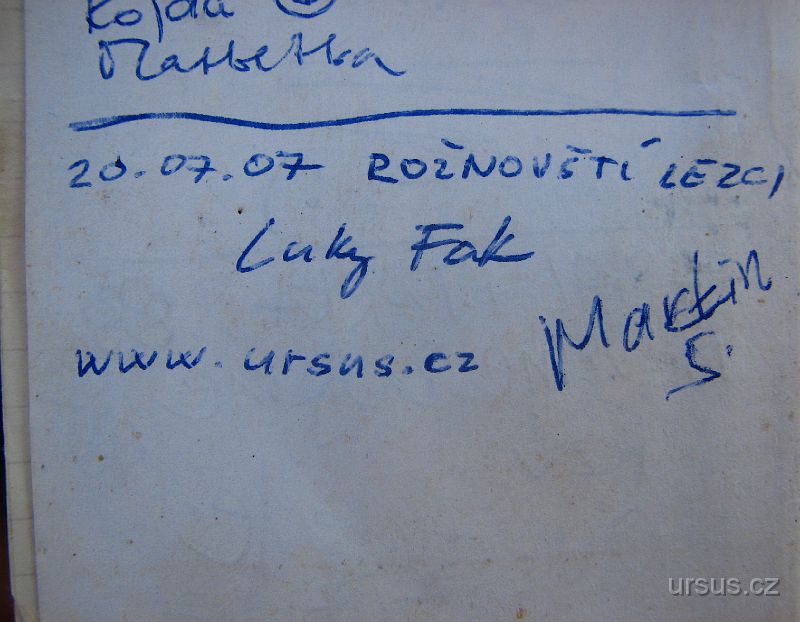 Kojda
20.07.07 ROŽNOVŠTÍ LEZCI
Luky Fak
Martin
S.
www.ursus.cz
ursus.cz